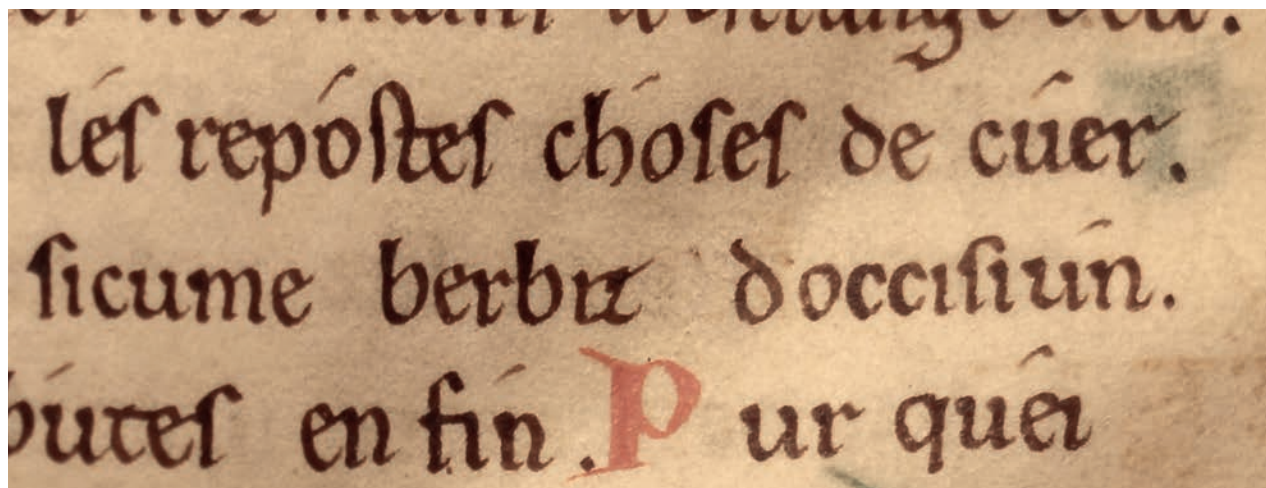 lés repóstes chóses dé cúer.
sicume berbiz doccisiún.
bútes en fín. Pur quéi